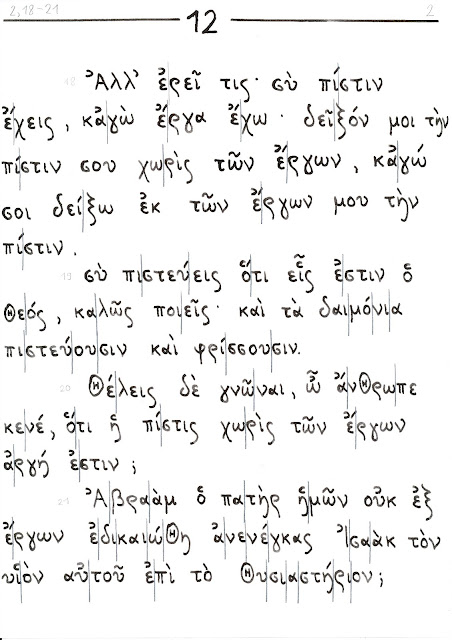 2,18-21 12 2
18 Ἀλλ' ἐρεῖ τις· σὺ πίστιν
ἔχεις, κἀγὼ ἔργα ἔχω· δεῖξόν μοι τὴν
πίστιν σου χωρὶς τῶν ἔργων, κἀγώ
σοι δείξω ἐκ τῶν ἔργων μου τὴν
πίστιν.
19 σὺ πιστεύεις ὅτι εἷς ἐστιν ὁ
Θεός, καλῶς ποιεῖς· καὶ τὰ δαιμόνια
πιστεύουσιν καὶ φρίσσουσιν.
20 Θέλεις δὲ γνῶναι, ὦ ἄνθρωπε
κενέ, ὅτι ἡ πίστις χωρὶς τῶν ἔργων
ἀργή ἐστιν;
21 Ἀβραὰμ ὁ πατὴρ ἡμῶν οὐκ ἐξ
ἔργων ἐδικαιώθη ἀνενέγκας Ἰσαὰκ τὸν
υἱὸν αὐτοῦ ἐπὶ τὸ θυσιαστήριον;